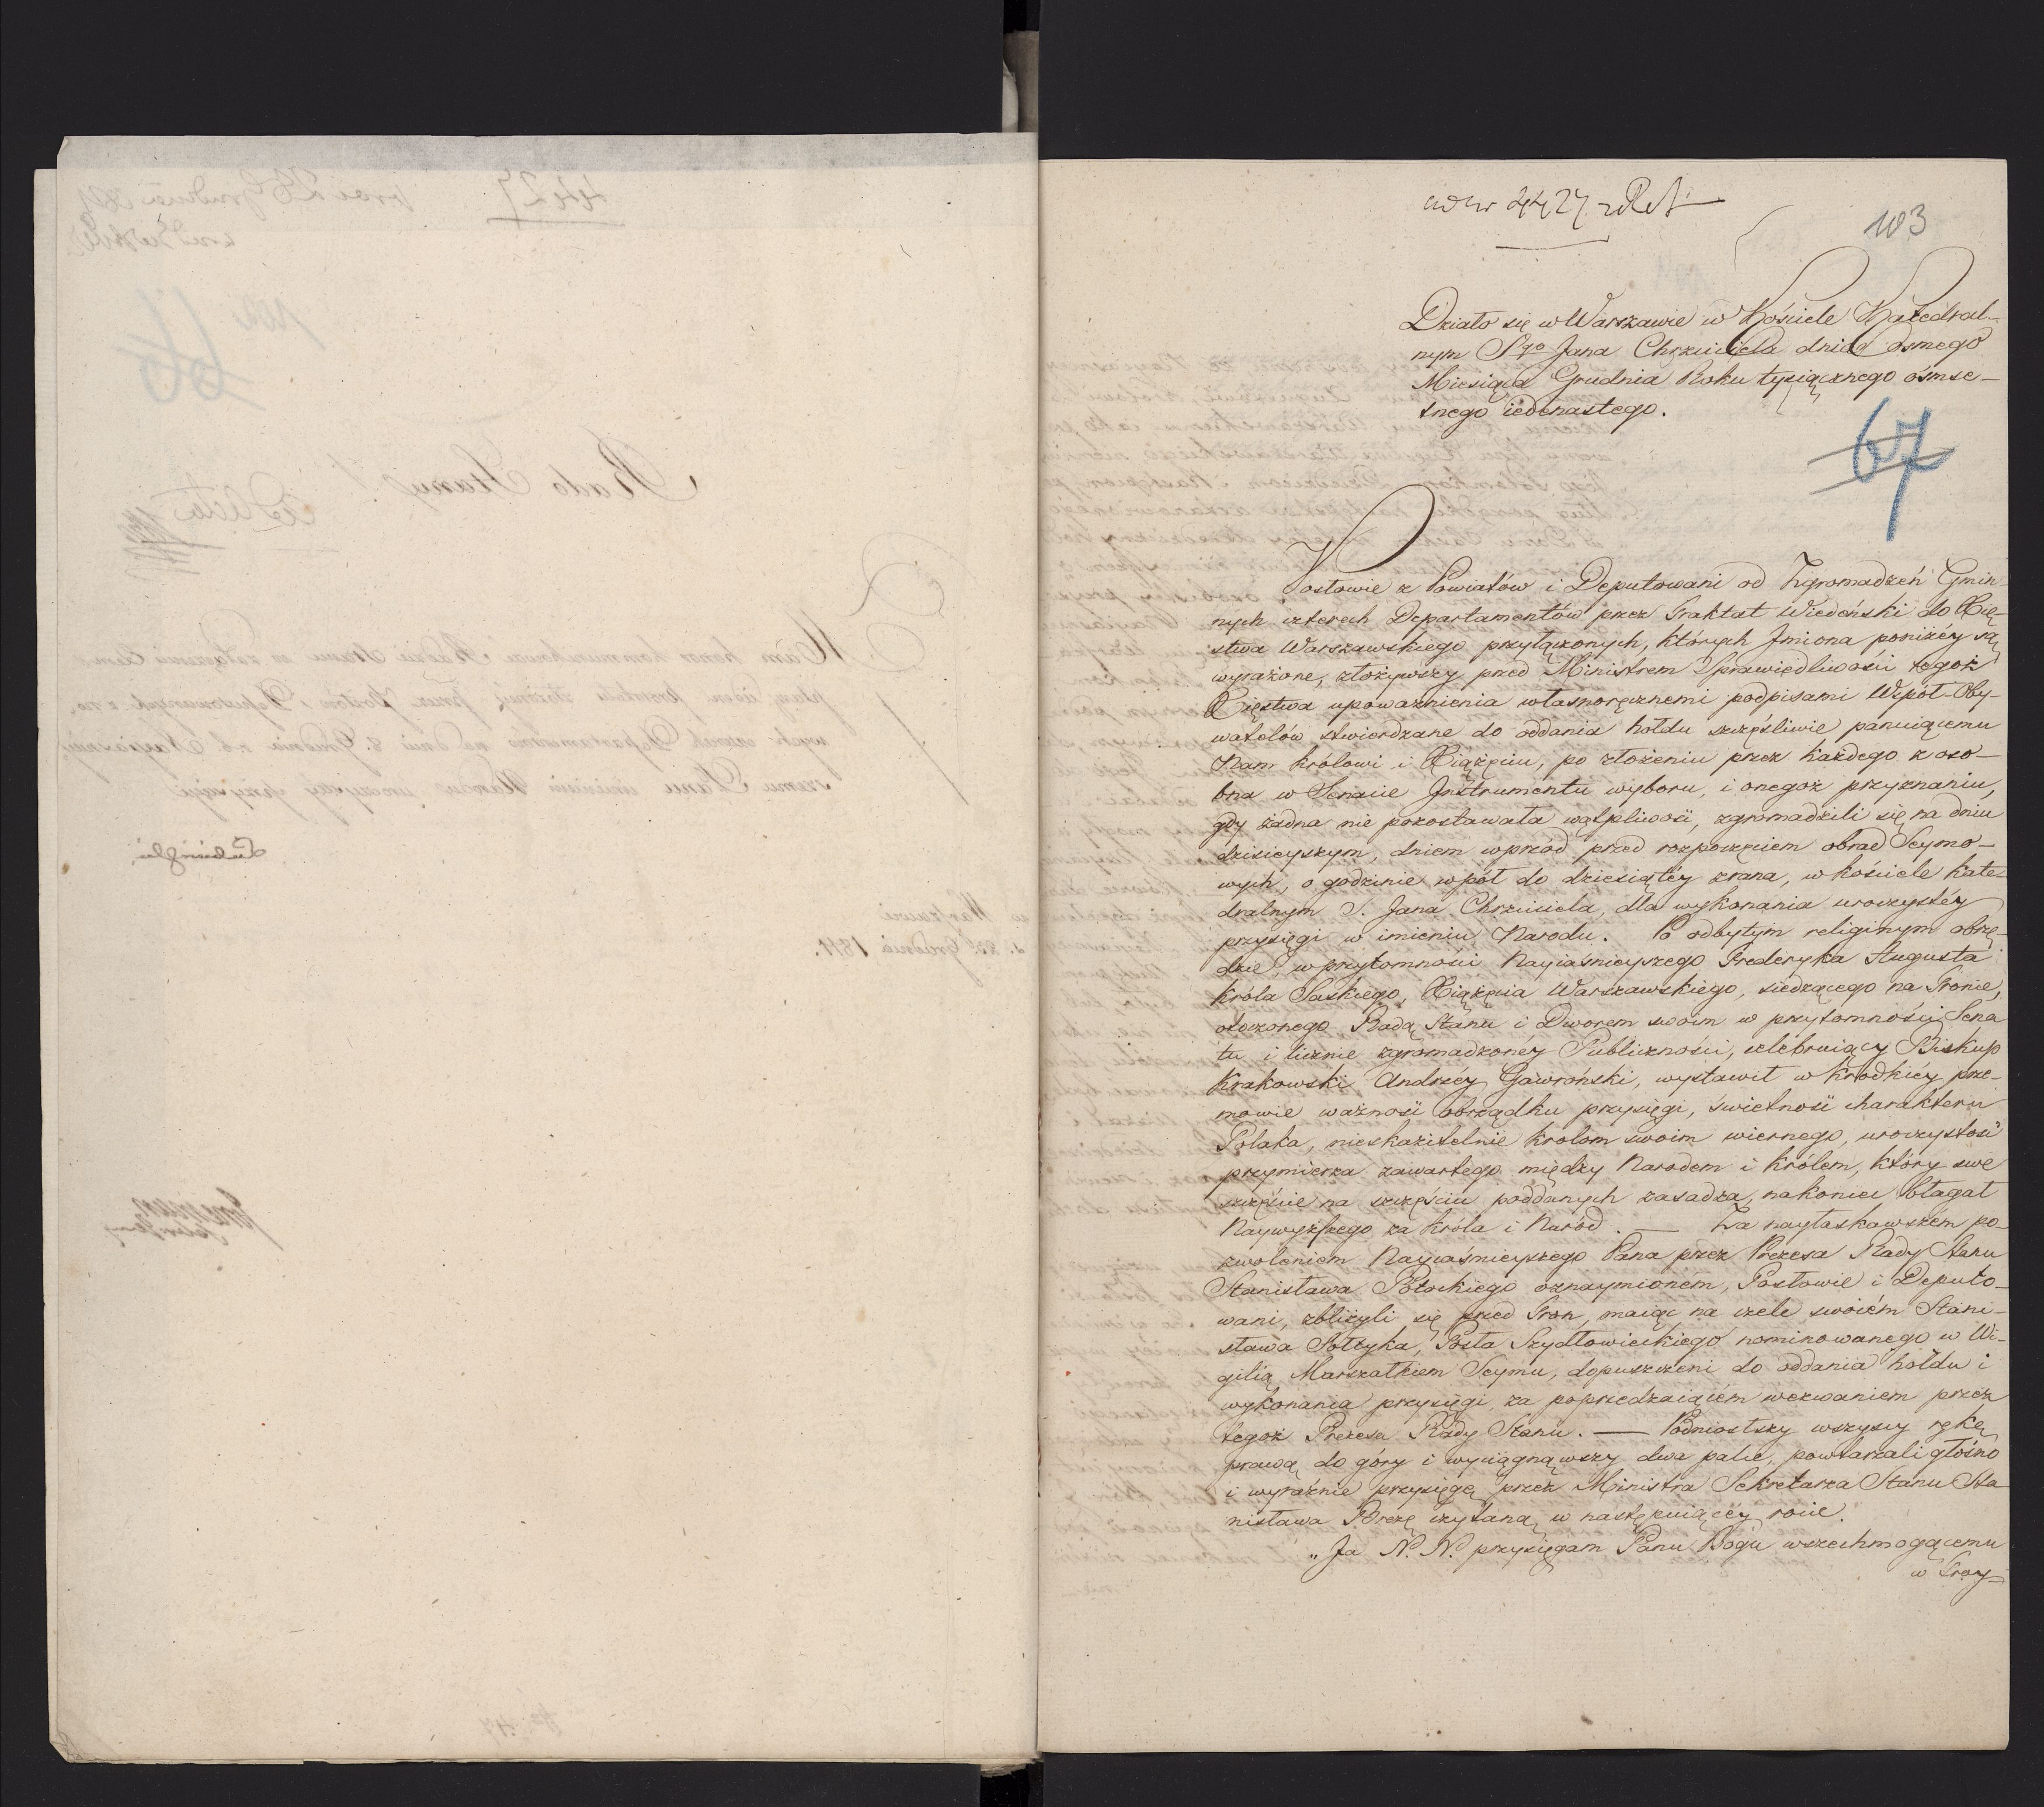 4427
103
Działo się w Warszawie w Kościele Katedral-
nym Sgo Jana Chrzciciela dnia Osmego
Miesiąca Grudnia Roku tysiącznego ośmse-
tnego iedenastego.
67
Posłowie z Powiatów i Deputowani od Zgromadzeń Gmin-
nych czterech Departamentów przez Traktat Wiedeński do Xię-
stwa Warszawskiego przyłączonych, których Jmiona poniżéy są
wyrażone, złożywszy przed Ministrem Sprawiedliwości tegoż
Xięstwa upoważnienia własnoręcznemi podpisami Współ-Oby-
watelów stwierdzone do oddania hołdu szczęśliwie panuiącemu
Nam Królowi i Xiążęciu, po złożeniu przez każdego z oso-
bna w Senacie Jnstrumentu wyboru, i onegoż przyznaniu,
gdy żadna nie pozostawała wątpliwość, zgromadzili się na dniu
dzisieyszym, dniem wprzód przed rozpoczęciem obrad Seymo-
wych, o godzinie wpół do dziesiątéy zrana, w kościele kate-
dralnym S. Jana Chrzciciela, dla wykonania uroczystéy
przysięgi w imieniu Narodu. Po odbytym religinym obrzę-
dzie, w przytomności Nayiaśnieyszego Frederyka Augusta
Króla Saskiego, Xiążęcia Warszawskiego, siedzącego na Tronie,
otoczonego Radą Stanu i Dworem swoim w przytomności Sena
tu i licznie zgromadzonéy Publiczności, celebruiący Biskup
Krakowski Andrzéy Gawroński, wystawił w krodkiéy prze-
mowie ważność obrządku przysięgi, świetność charakteru
Polaka, nieskazitelnie krolom swoim wiernego, uroczystość
przymierza zawartego między Narodem i Królem, który swe
szczęście na szczęściu poddanych zasadza, nakoniec błagał
Naywyższego za Króla i Naród. — Za nayłaskawszem po-
zwoleniem Nayiaśnieyszego Pana przez Prezesa Rady Stanu
Stanisława Potockiego oznaymioném, Posłowie i Deputo-
wani, zbliżyli się przed Tron, maiąc na czele swoiém Stani-
sława Sołtyka, Posła Szydłowieckiego nominowanego w Wi-
gilią Marszałkiem Seymu, dopuszczeni do oddania hołdu i
wykonania przysięgi, za poprzedzaiąiém wezwaniem przez
tegoż Prezesa Rady Stanu. — Podniosłszy wszyscy rękę
prawą do góry i wyciągnąwszy dwa palce, powtarzali głośno
i wyraźnie przysięgę przez Ministra Sekretarza Stanu Sta
nisława Brezę czytaną w następuiącéy rocie.
„Ja N. N. przysięgam Panu Bogu wszechmogącemu
w Troy=